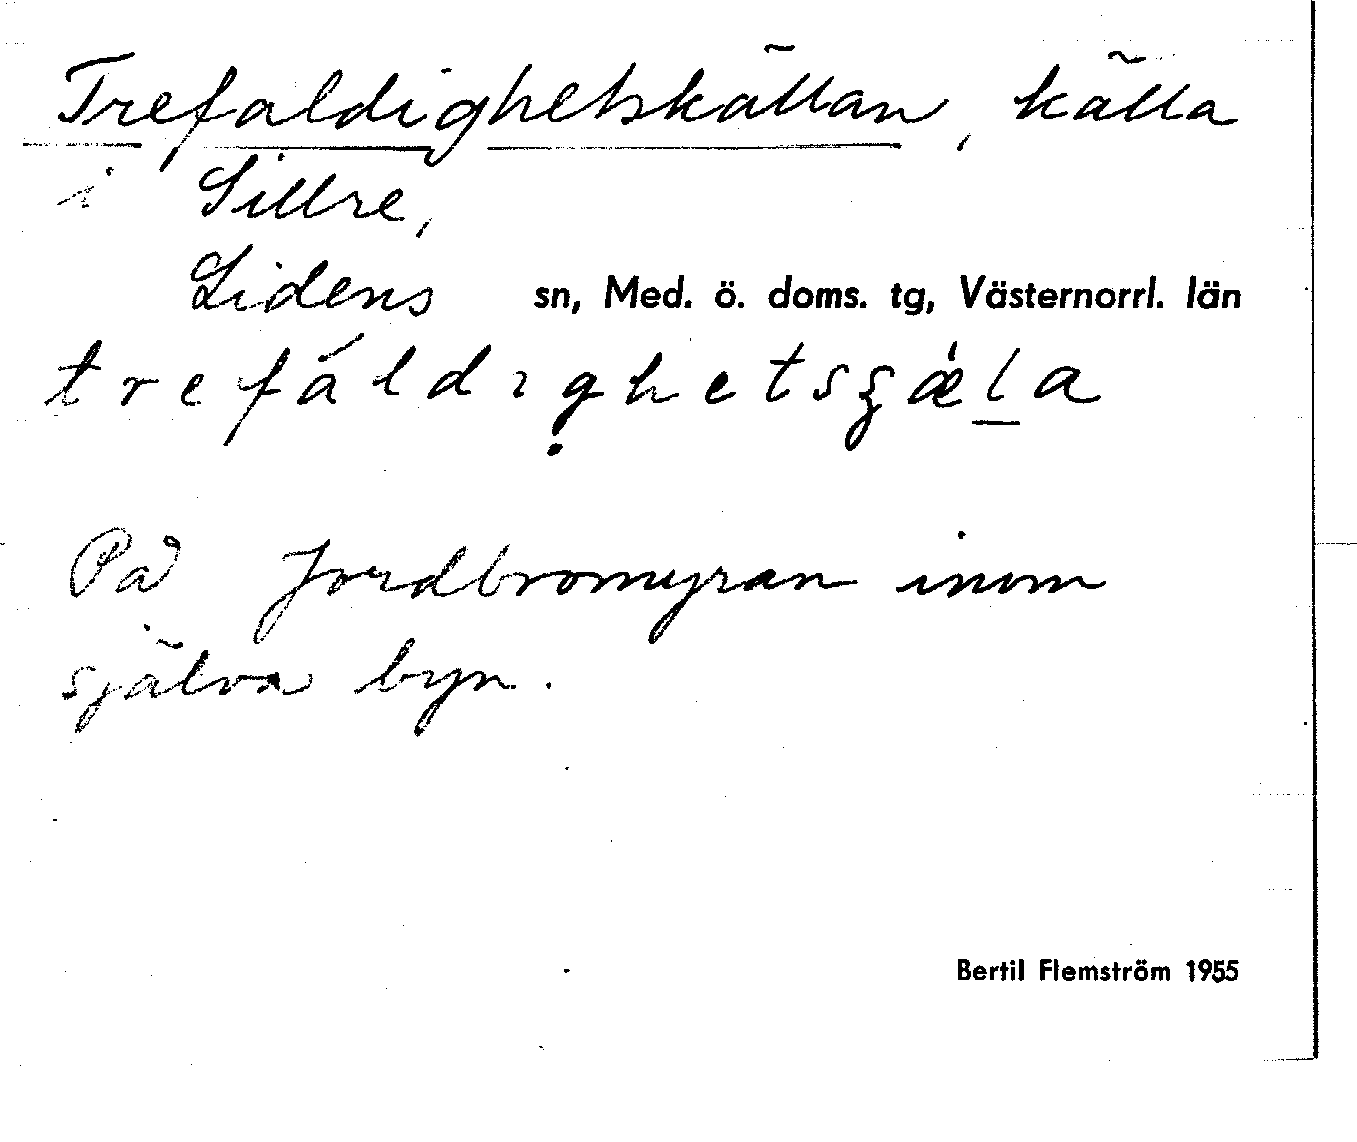 Trefaldighetskällan, källa
i Sillre,
Lidens sn, Med. ö. doms. tg, Västernorrl. län
På Jordbromyran inom
själva byn.
Bertil Flemström 1955